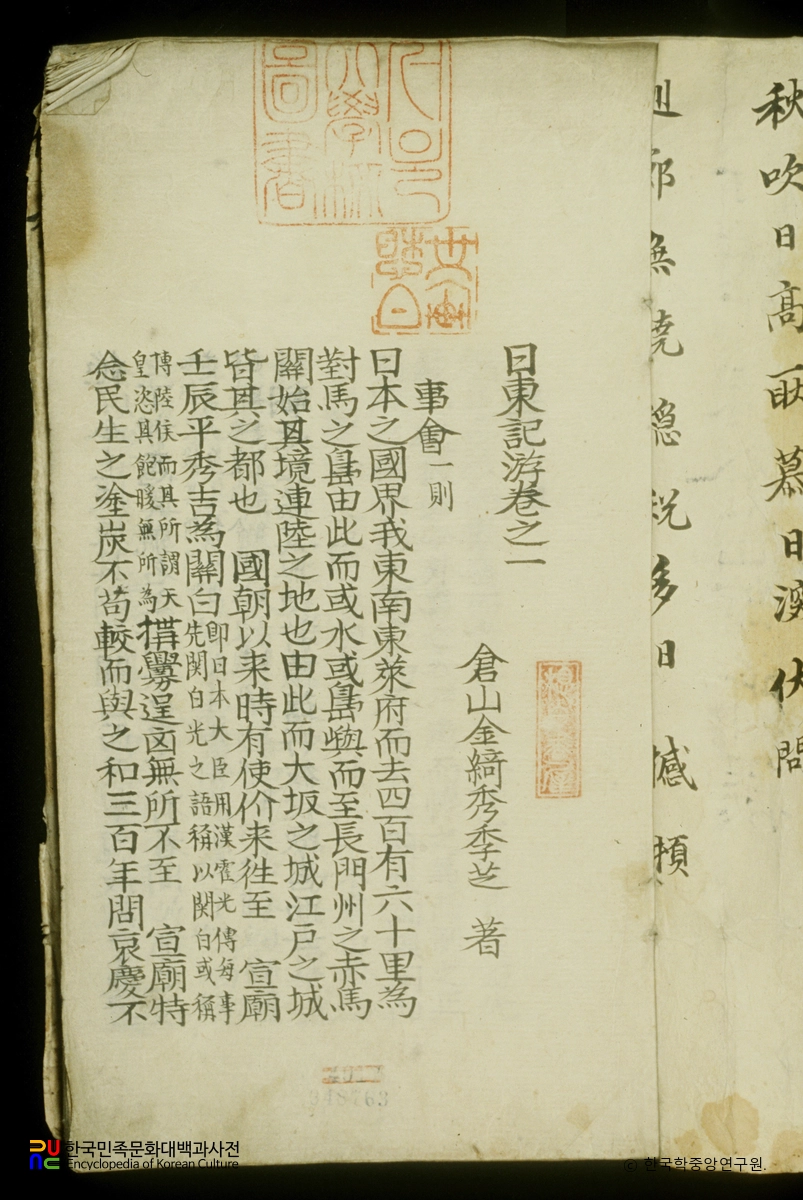 秋吹日高 慕日 伏問
無 隐 多日 撼 頓
日東記游卷之一
倉山金綺秀季芝 著
事會一則
日本之國界我東南東萊府而去四百有六十里為
對馬之島由此而或水或島嶼而至長門州之赤馬
關始其境連陸之地也由此而大坂之城江戶之城
皆其之都也 國朝以来時有使价来徃至 宣廟
壬辰平秀吉為關白即日本大臣用漢霍光傳每事
先関白光之語稱以関白或稱
博陸侯而其所謂天
皇恣其飽暖無所為構釁逞凶無所不至 宣廟特
念民生之塗炭不苟較而與之和三百年間哀慶不
한국민족문화대백과사전
Encyclopedia of Korean Culture
© 한국학중앙연구원.